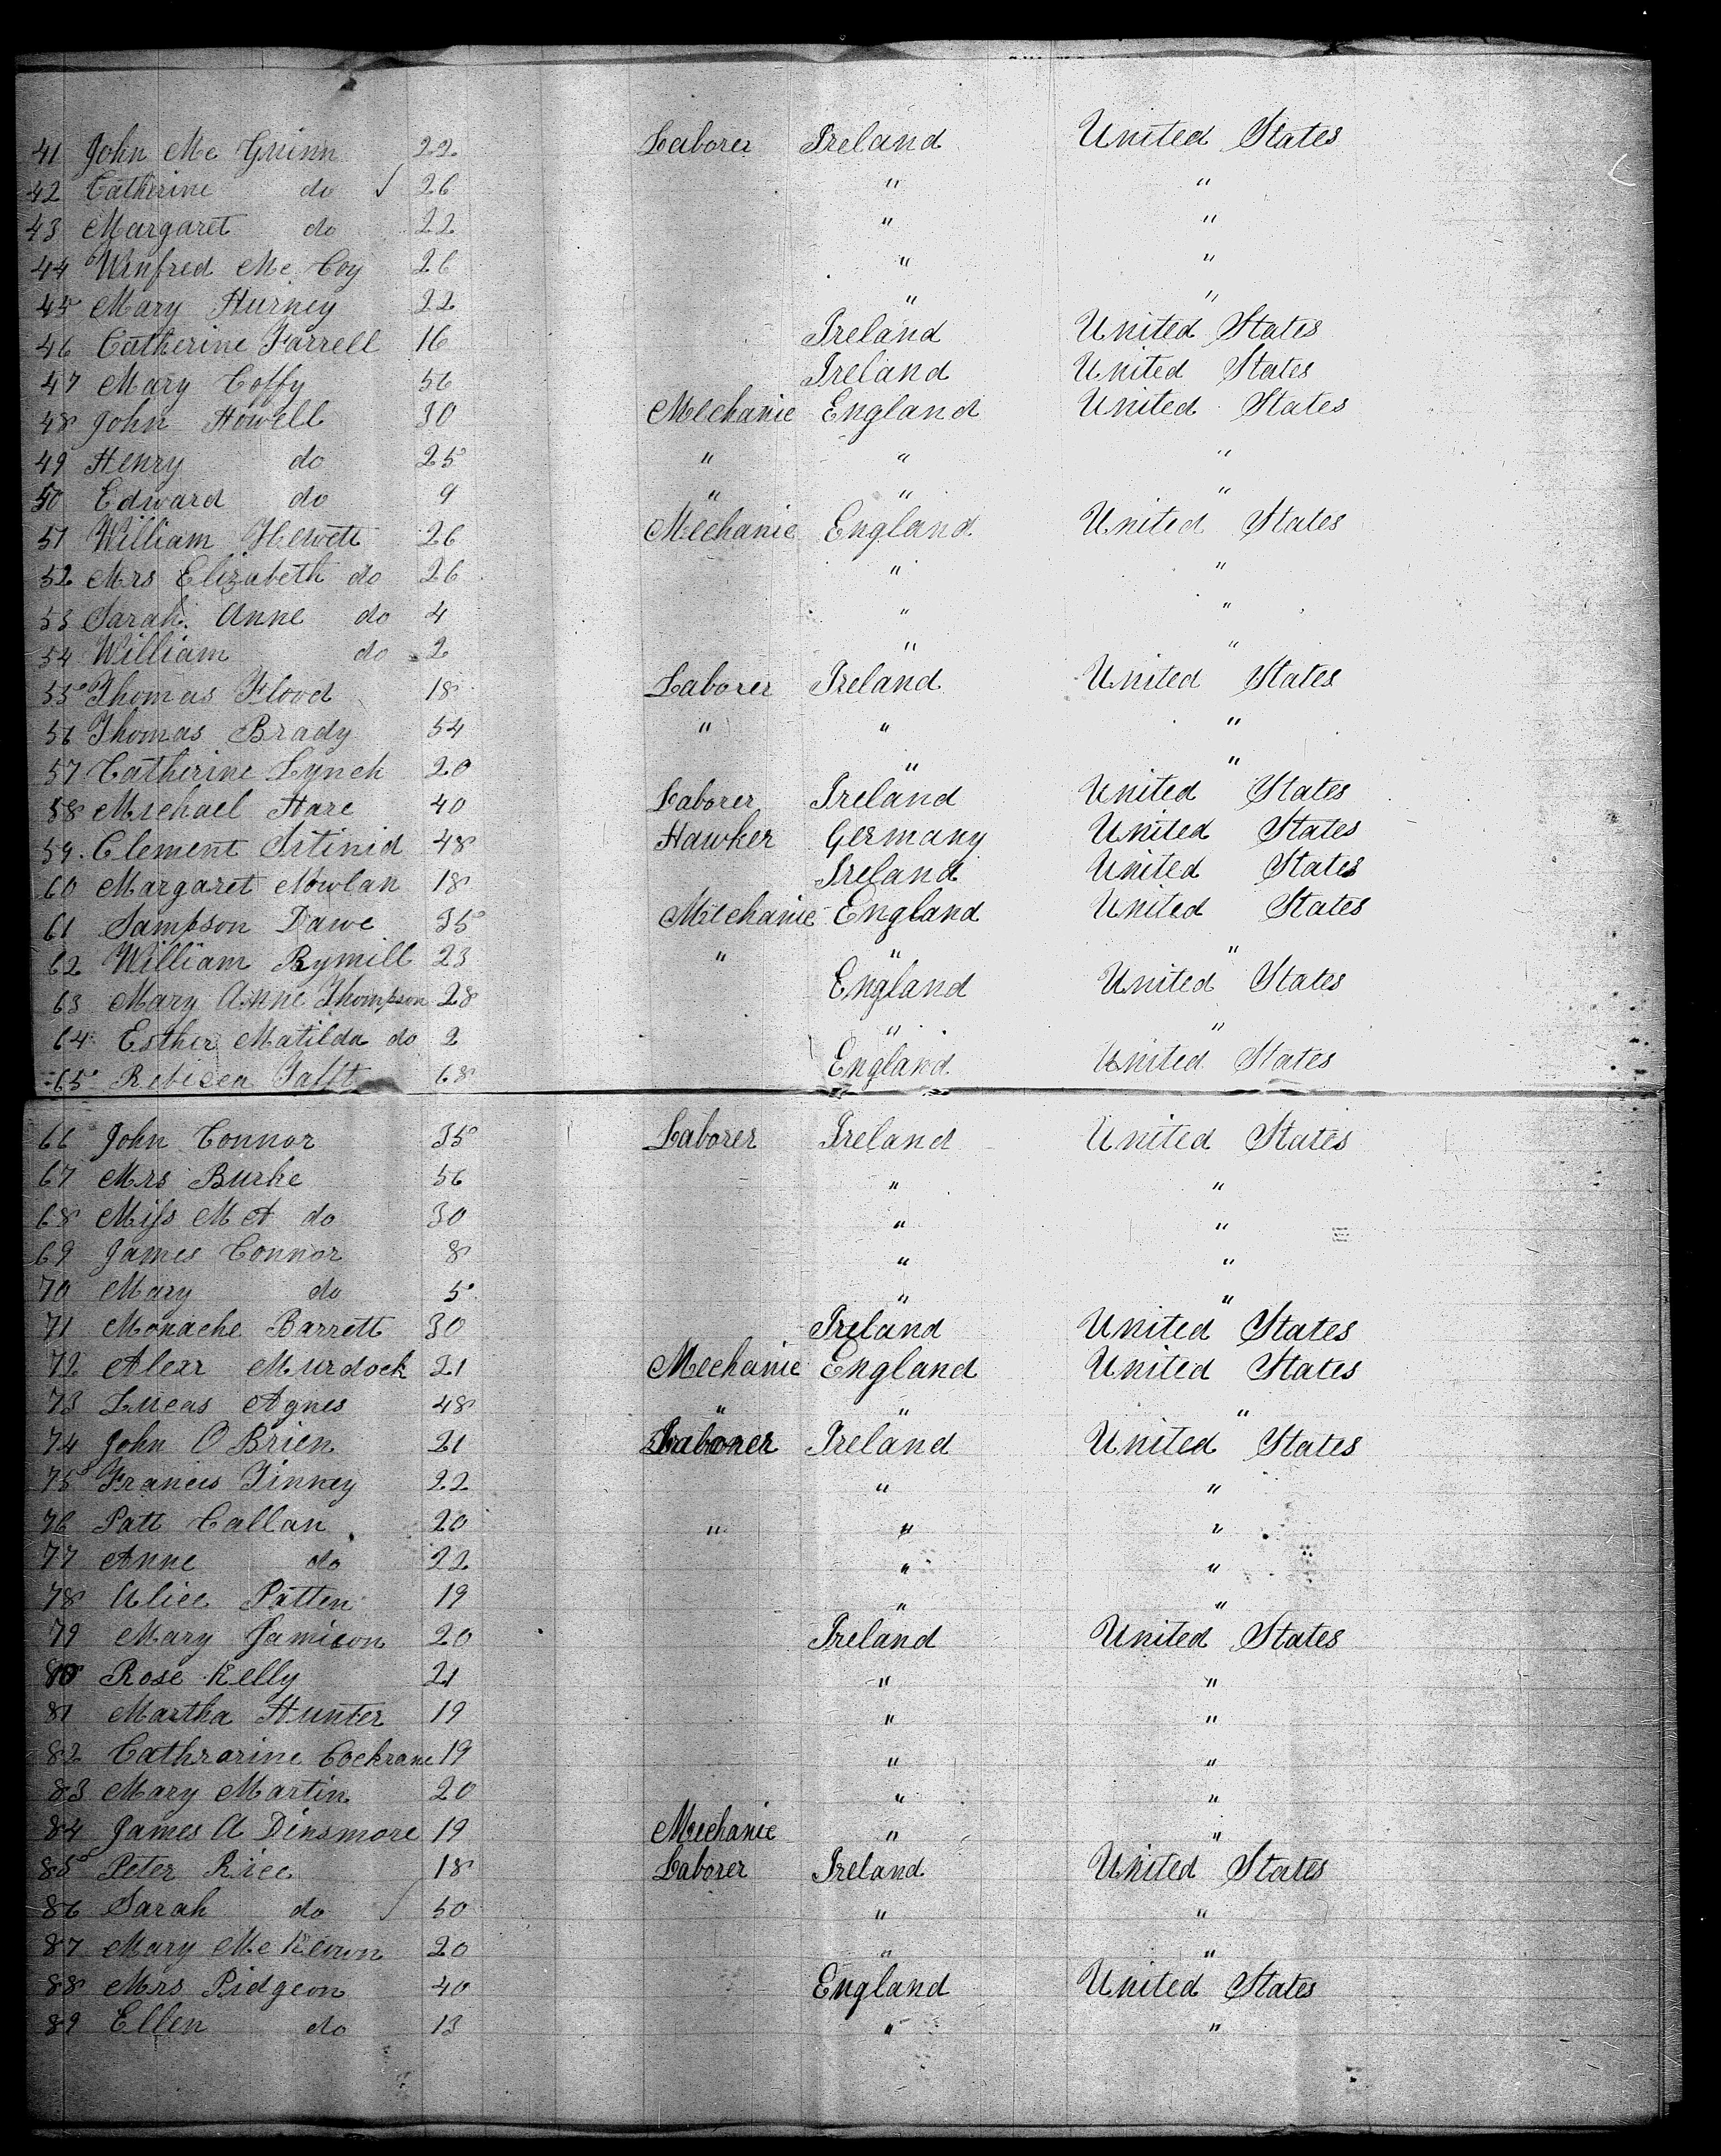 41 John Mc Guinn 22 Laborer Ireland United States
42 Catherine do √ 26 " "
43 Margaret do 22 " "
44 Winfred Mc Coy 26 " "
45 Mary Hurney 22 " "
46 Catherine Farrell 16 Ireland United States
47 Mary Coffy 56 Ireland United States
48 John Howell 30 Mechanic England United States
49 Henry do 25 " " "
50 Edward do 9 " " "
51 William Hewett 26 Mechanic England United States
52 Mrs Elizabeth do 26 " "
53 Sarah Anne do 4 " "
54 William do 2 " "
55 Thomas Flood 18 Laborer Ireland United States
56 Thomas Brady 54 " " "
57 Catherine Lynch 20 " "
58 Michael Hare 40 Laborer Ireland United States
59 Clement Sitinid 48 Hawker Germany United States
60 Margaret Nowlan 18 Ireland United States
61 Sampson Dawe 35 Mechanic England United States
62 William Rymill 23 " " "
63 Mary Anne Thompson 28 England United States
64 Esther Matilda do 2 " "
65 Rebicca 68 England United States
66 John Connor 35 Laborer Ireland United States
67 Mrs Burke 56 " "
68 Miss M A do 30 " "
69 James Connor 8 " "
70 Mary do 5 " "
71 Monache Barrett 30 Ireland United States
72 Alexr Murdock 21 Mechanic England United States
73 Lucas Agnes 48 " " "
74 John O Brien 21 Laborer Ireland United States
75 Francis Finney 22 " "
76 Patt Callan 20 " " "
77 Anne do 22 " "
78 Alice Patten 19 " "
79 Mary Jamison 20 Ireland United States
80 Rose Kelly 21 " "
81 Martha Hunter 19 " "
82 Cathrarine Cockrane 19 " "
83 Mary Martin 20 " "
84 James A Dinsmore 19 Mechanic " "
85 Peter Rice 18 Laborer Ireland United States
86 Sarah do √ 50 " "
87 Mary Mc Keown 20 " "
88 Mrs Pidgeon 40 England United States
89 Ellen do 13 " "